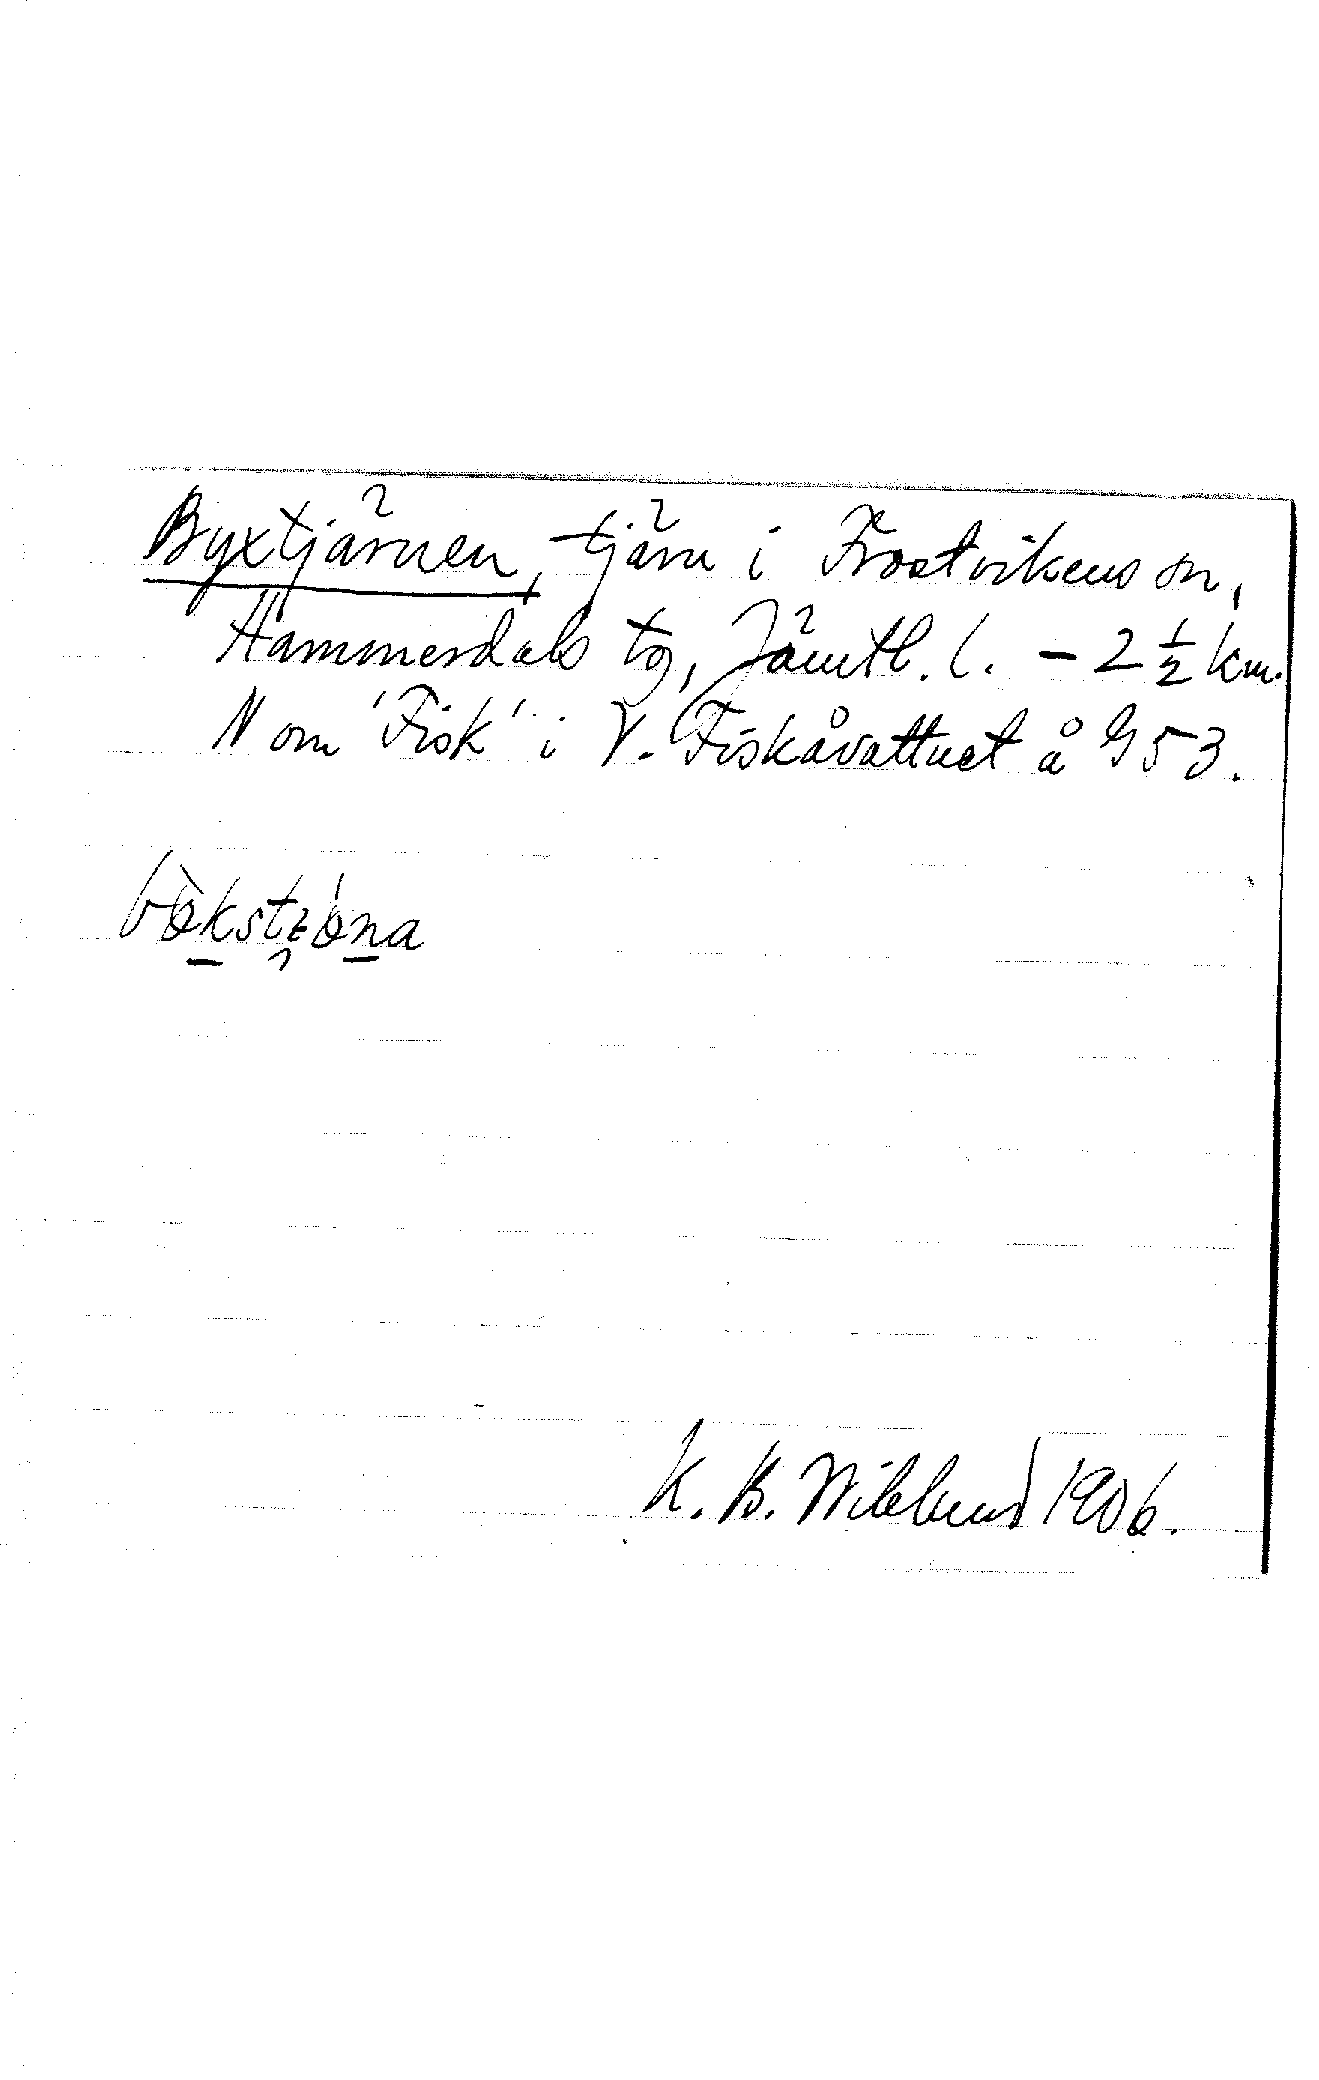 Byxtjärnen, tjärn i Frostvikens sn,
Hammerdals tg, Jämtl. l. – 2 ½ km.
N om 'Fisk' i V. Fiskåvattnet å G53.
K. B. Wiklund 1906.